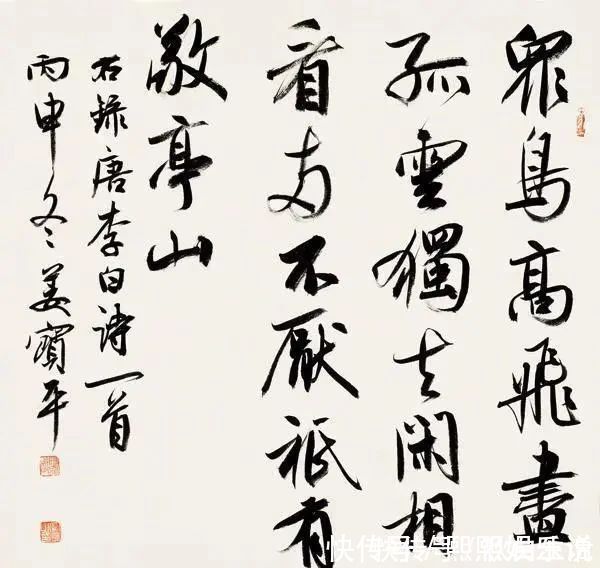 眾鳥高飛盡
孤雲獨去閑相
看兩不厭祇有
敬亭山
右錄唐李白詩一首
丙申冬姜寶平
快传号/熙熙娱乐说